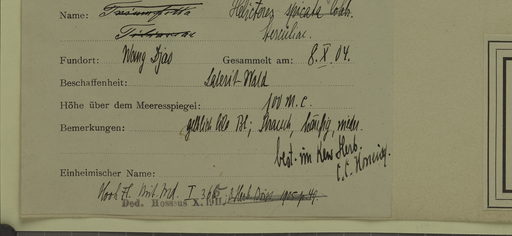 Name: Helicteres spicata Colebr.
Sterculiac.
Fundort: Wang Djao Gesammelt am: 8. X. 04.
Beschaffenheit: Laterit-Wald
Höhe über dem Meeresspiegel: 100 m. c.
Bemerkungen: gelblich lila Bl; Strauch, häufig,
best. im Kew Herb.
C. C. Hosseus.
Einheimischer Name:
Hook Fl. Brit. Ind. I. 366
Ded. Hosseus X. 1911.